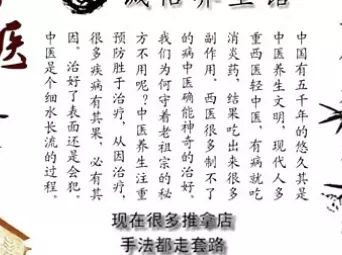 医
中国有五千年的悠久其是
中医养生文明，现代人多
重西医轻中医，有病就吃
消炎药，结果吃出来很多
副作用。西医很多制不了
的病中医确能神奇的治好。
我们为何守着老祖宗的秘
方不用呢？中医养生注重
预防胜于治疗，从因治疗，
很多疾病有其果，必有其
因。治好了表面还是会犯。
中医是个细水长流的过程。
现在很多推拿店
手法都走套路